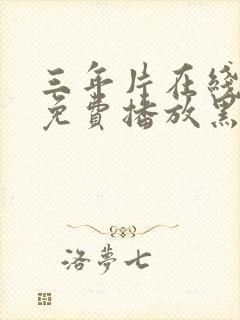 三年片在线
免費播放黑
洛夢七